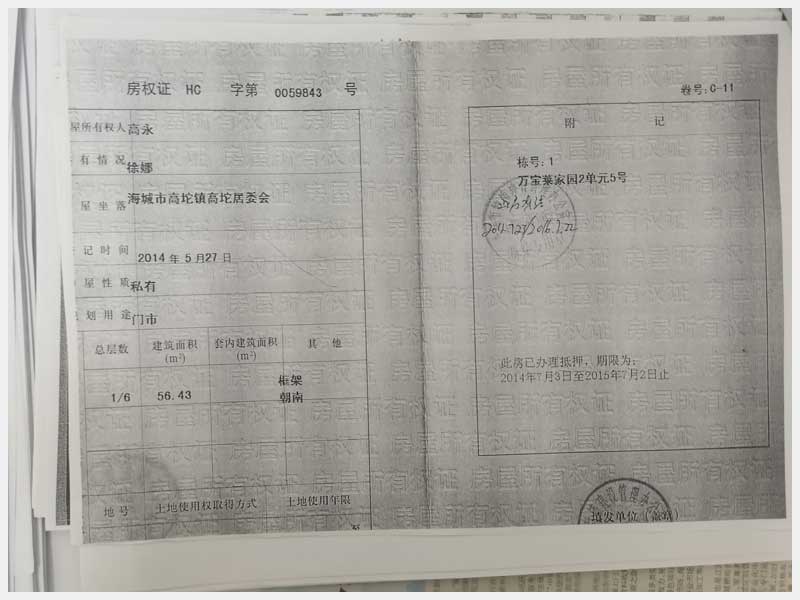 房权证 HC 字第 0059843 号
屋所有权人 高永
有情况 徐娜
屋坐落 海城市高坨镇高坨居委会
记时间 2014年5月27日
屋性质 私有
划用途 门市
总层数 建筑面积(m²) 套内建筑面积(m²) 其他
1/6 56.43 框架
朝南
地号 土地使用权取得方式 土地使用年限
至
卷号: C-11
附记
栋号: 1
万宝莱家园2单元5号
此房已办理抵押,期限为:
2014年7月3日至2015年7月2日止
填发单位(盖章)